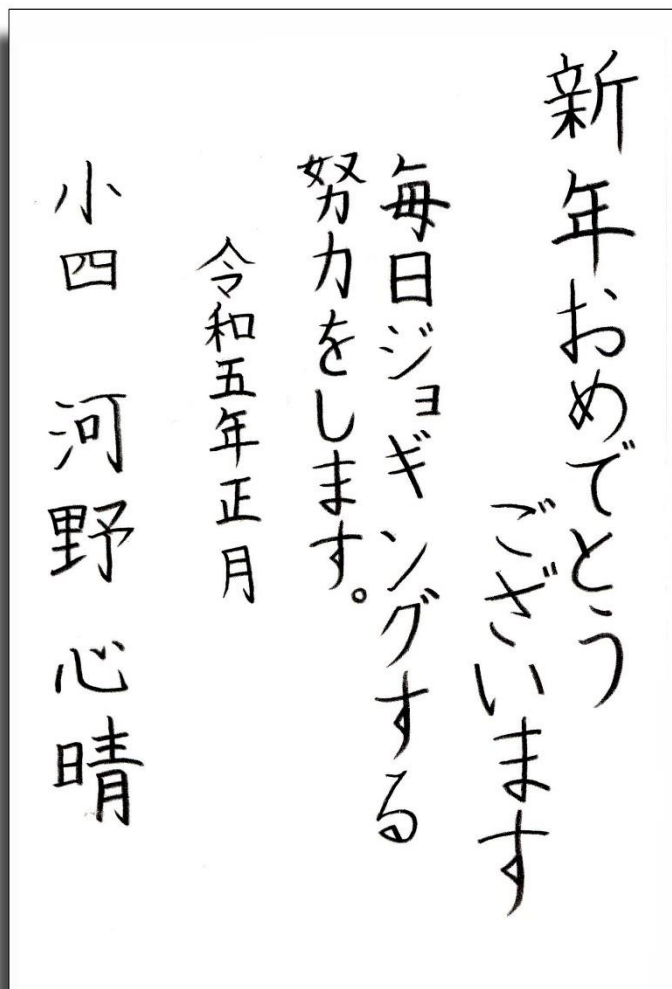 新年おめでとう
ございます
毎日ジョギングする
努力をします。
令和五年正月
小四 河野 心晴